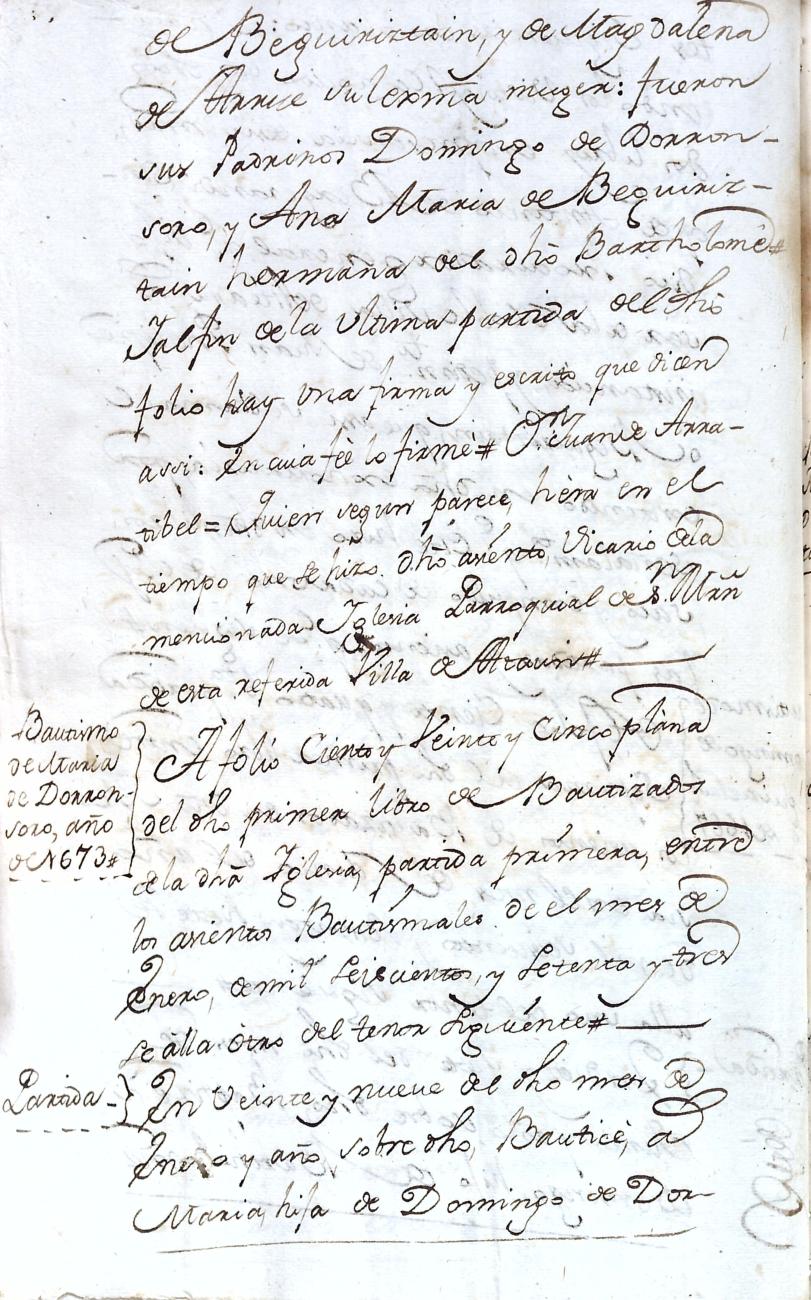 de Beguiriztain, y de Magdalena
de Arrue su lexma muger: fueron
sus Padrinos Domingo de Dorron-
soro, y Ana Maria de Beguiriz-
tain hermana del dho Bartholomè#
Jal fin de la vltima partida del dho
folio hay vna firma y escrito que dicen
assi: En cuia feè lo firmè# Dn Juan de Arra-
tibel= Quien segun parece, hera en el
tiempo que se hizo dho asiento, Vicario de la
mencionada Iglesia Parroquial de Sn. Mrn
de esta referida Villa de Ataun#
Bautismo
de Maria
de Dorron-
soro, año
de 1673#
A folio Ciento y Veinte y Cinco plana
del dho primer libro de Bautizados
de la dha Iglesia, partida primera, entre
los asientos Bautismales de el mes de
Enero, de mil seiscientos, y setenta y tres
se àlla òtro del tenor siguiente#
Partida
En Veinte y nueve del dho mes de
Enero y año sobre dho, Bauticè, a
Maria, hija de Domingo de Dor-